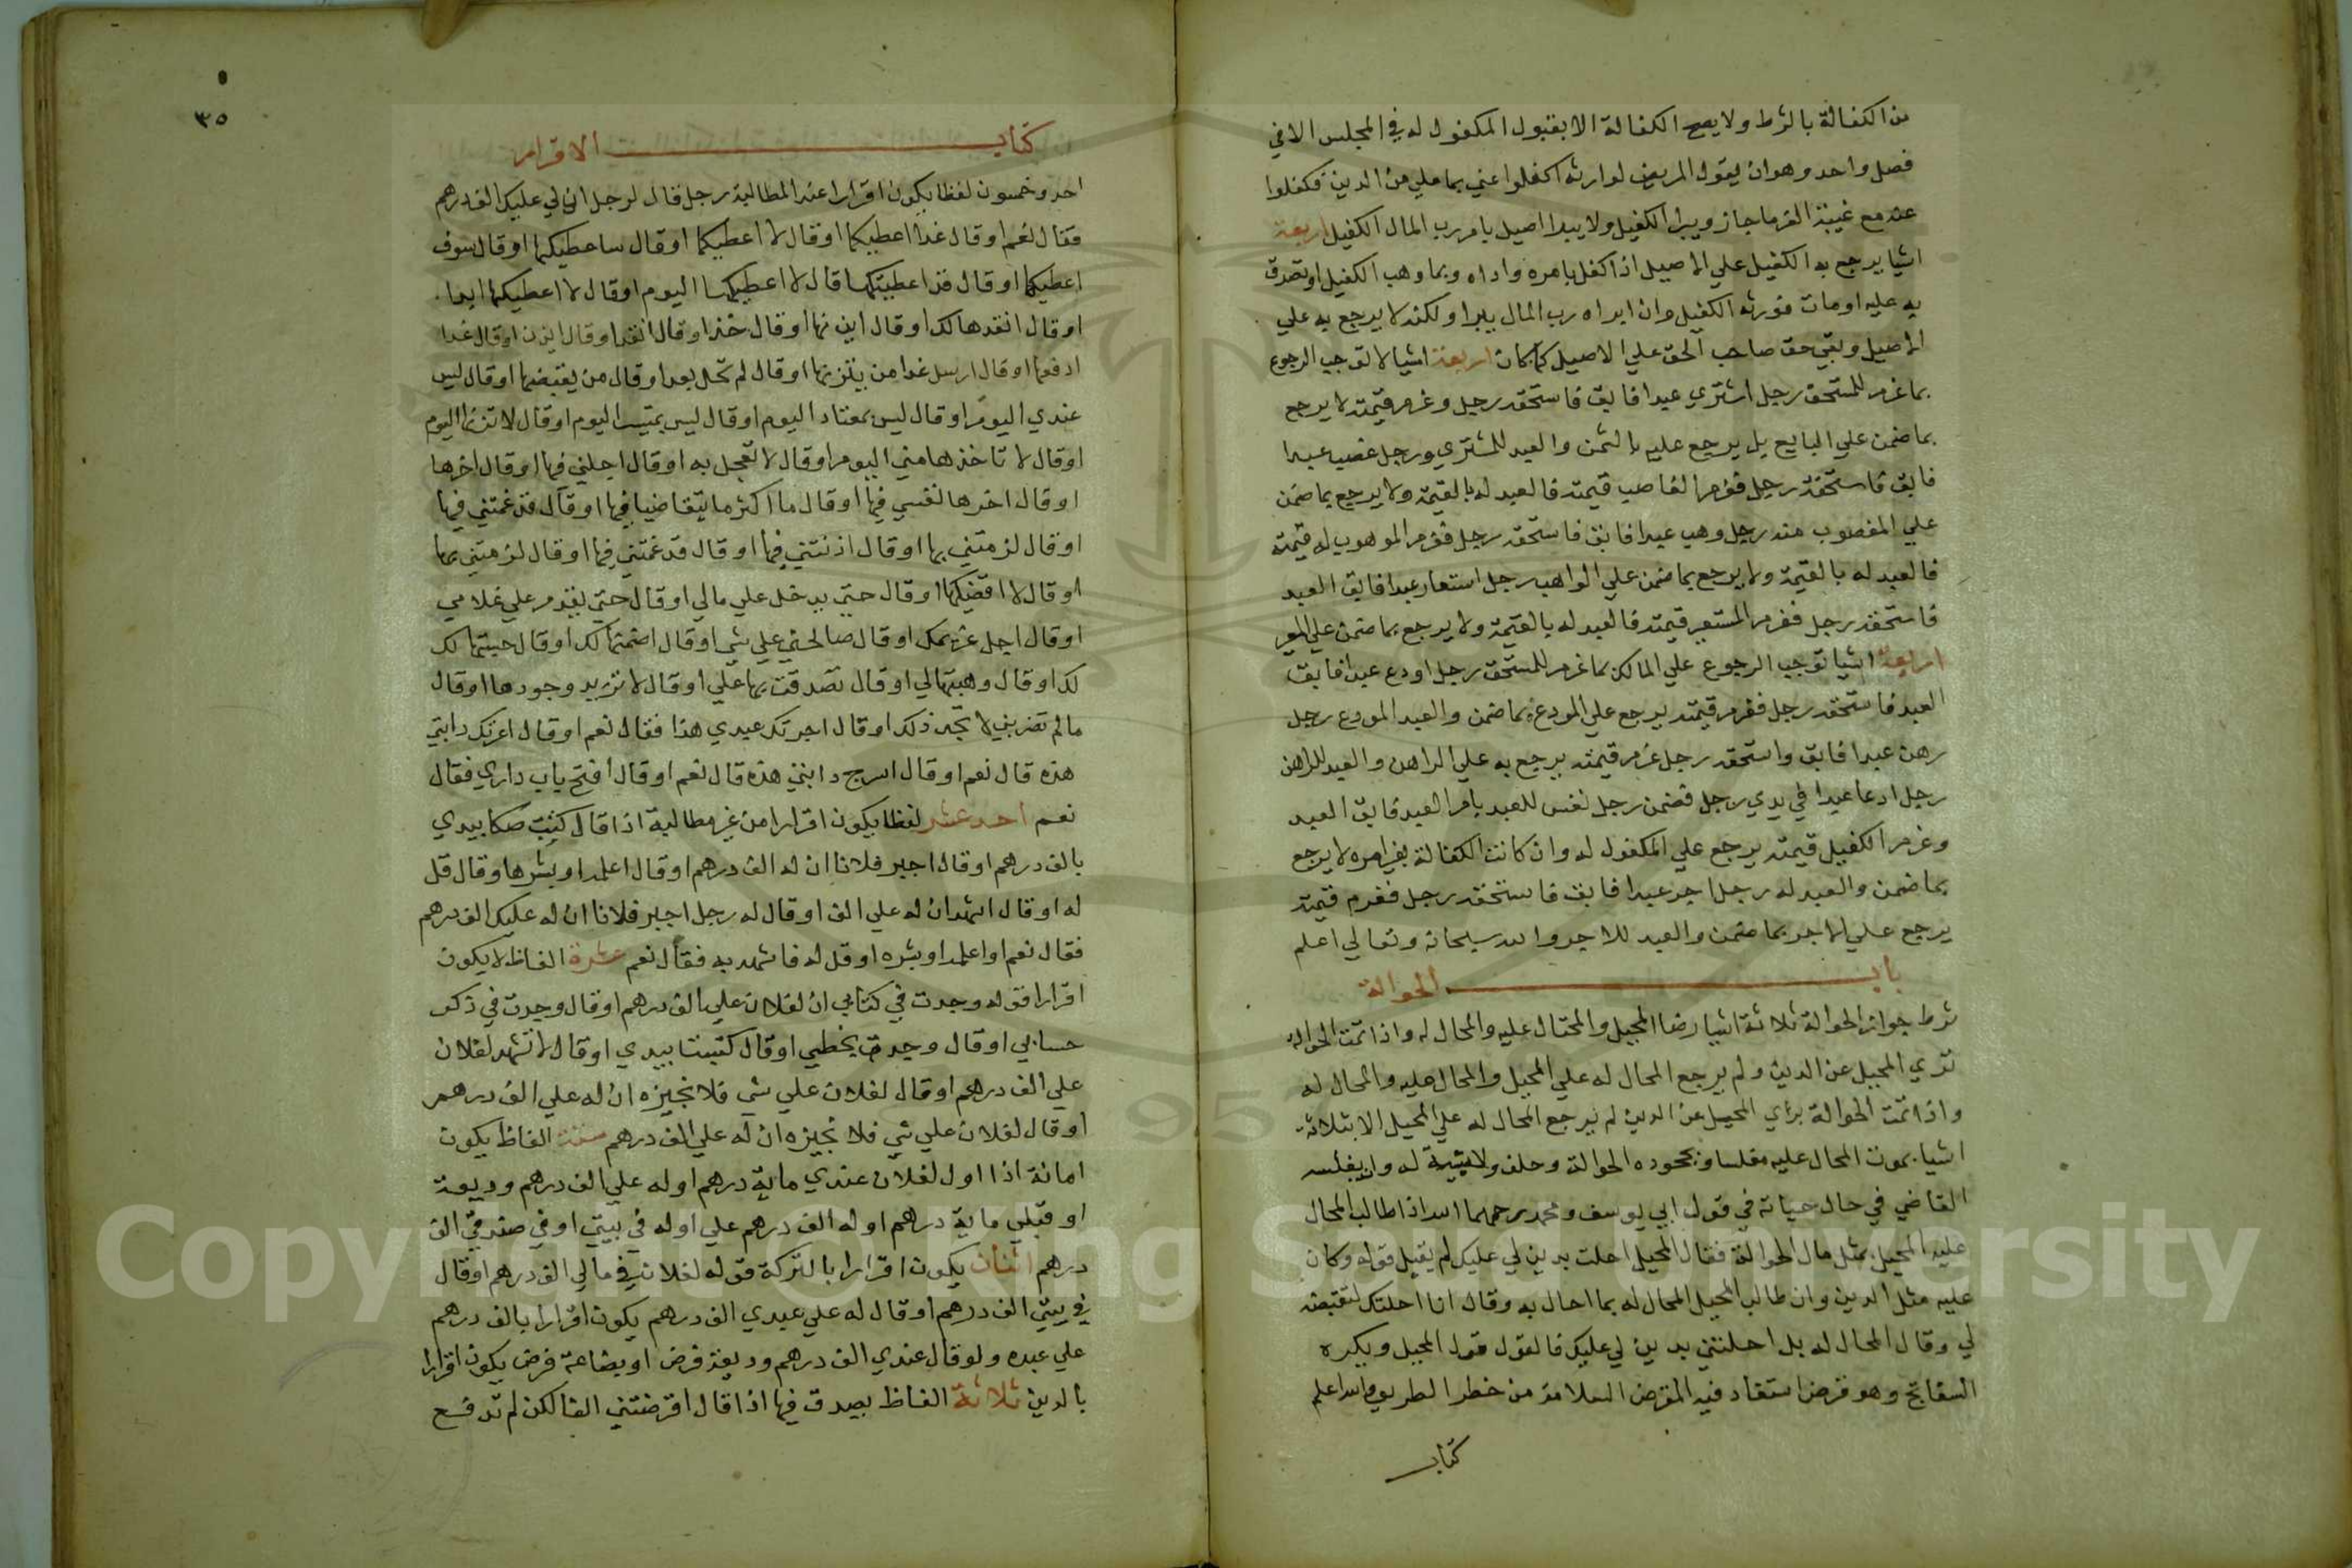 من الكفالة بالشرط ولا يصح الكفالة الا بقبول المكفول له في المجلس الا في
فصل واحد وهو ان يقول المريض لوارثه اكفلوا عني بما علي من الدين فكفلوا
عنه مع غيبة الغرما جاز ويبرا الكفيل ولا يبدا اصيل بامر رب المال الكفيل اربعة
اشيا يرجع به الكفيل علي الاصيل اذا كفل بامره واداه وبما وهب الكفيل او تصدق
به عليه او مات فورثه الكفيل وان ابراه رب المال يبرا ولكنه لا يرجع به علي
الاصيل وبقي حق صاحب الحق علي الاصيل كما كان اربعة اشيا لا توجب الرجوع
بما غرم للمستحق رجل اشتري عبدا فابق فاستحقه رجل وغرم قيمته لا يرجع
بما ضمن علي البايع بل يرجع عليه بالثمن والعبد للمشتري ورجل غصب عبدا
فابق فاستحقه رجل فغرم الغاصب قيمته فالعبد له بالقيمة ولا يرجع بما ضمن
علي المغصوب منه رجل وهب عبدا فابق فاستحقه رجل فغرم الموهوب له قيمته
فالعبد له بالقيمة ولا يرجع بما ضمن علي الواهب رجل استعار عبدا فابق العبد
فاستحقه رجل فغرم المستعير قيمته فالعبد له بالقيمة ولا يرجع بما ضمن علي المعير
اربعة اشيا توجب الرجوع علي المالك بما غرم للمستحق رجل اودع عبدا فابق
العبد فاستحقه رجل فغرم قيمته يرجع علي المودع بما ضمن والعبد المودع رجل
رهن عبدا فابق واستحقه رجل غرم قيمته يرجع به علي الراهن والعبد للراهن
رجل ادعا عبدا في يدي رجل فضمن رجل نفس للعبد بامر العبد فابق العبد
وغرم الكفيل قيمته يرجع علي المكفول له وان كانت الكفالة بغير امره لا يرجع
بما ضمن والعبد له رجل اجر عبدا فابق فاستحقه رجل فغرم قيمته
يرجع علي الاجر بما ضمن والعبد للاجر والله سبحانه وتعالي اعلم
باب الحوالة
شرط جواز الحوالة ثلاثة اشيا رضا المحيل والمحتال عليه والمحال له واذا تمت الحوالة
بري المحيل عن الدين ولم يرجع المحال له علي المحيل والمحال عليه والمحال له
واذا تمت الحوالة بري المحيل عن الدين لم يرجع المحال له علي المحيل الا بثلاثة
اشيا بموت المحال عليه مفلسا وبجحوده الحوالة وحلف ولا بينة له وان يفلسه
القاضي في حال حياته في قول ابي يوسف ومحمد رحمهما الله اذا طالب المحال
عليه المحيل بمثل مال الحوالة فقال المحيل احلت بدين لي عليك لم يقبل قوله وكان
عليه مثل الدين وان طالب المحيل المحال له بما احال به وقال انا احلتك لتقبضه
لي وقال المحال له بل احلتني بدين لي عليك فالقول قول المحيل ويكره
السفاتج وهو قرض استفاد فيه المقرض السلامة من خطر الطريق والله اعلم
كتاب
٣٥
كتاب الاقرار
احد وخمسون لفظا يكون اقرارا عند المطالبة رجل قال لرجل ان لي عليك الف درهم
فقال نعم او قال غدا اعطيكها او قال لا اعطيكها او قال ساعطيكها او قال سوف
اعطيكها او قال قد اعطيتكها قال لا اعطيكها اليوم او قال لا اعطيكها ابدا
او قال انقدها لك او قال اين نها او قال خذ او قال انقد او قال اتزن او قال غدا
ادفعها او قال ارسل غدا من يتزنها او قال لم تحل بعد او قال من يقبضها او قال ليس
عندي اليوم او قال ليس بمعتاد اليوم او قال ليس بمتيسر اليوم او قال لا تتزنها اليوم
او قال لا تاخذها مني اليوم او قال لا تعجل به او قال اجلني فيها او قال اخرها
او قال اخرها لنفسي فيها او قال ما اكثر ما يتقاضيا فيها او قال قد غمتني فيها
او قال لزمتني بها او قال اذنتني فيها او قال قد غمتني فيها او قال لزمتني بها
او قال لا اقضيكها او قال حتي يدخل علي مالي او قال حتي يقدم علي غلامي
او قال اجل غريمك او قال صالحني علي شي او قال اضمنها لك او قال حبيتها لك
لك او قال وهبتها لي او قال تصدقت بها علي او قال لا نزيد وجودها او قال
ما لم تضربني لا تجد ذلك او قال اجرتك عبدي هذا فقال نعم او قال اعرتك دابتي
هذه قال نعم او قال اسرج دابتي هذه قال نعم او قال افتح باب داري فقال
نعم احد عشر لفظا يكون اقرارا من غير مطالبة اذا قال كتبت صكا بيدي
بالف درهم او قال اجبر فلانا ان له الف درهم او قال اعلمه او بشرها وقال قل
له او قال اشهد ان له علي الف او قال له رجل اجبر فلانا ان له عليك الف درهم
فقال نعم او اعلمه او بشره او قل له فاشهد به فقال نعم عشرة الفاظ لا يكون
اقرارا قوله وجدت في كتابي ان لفلان علي الف درهم او قال وجدت في ذكر
حسابي او قال وجدت بخطي او قال كتبت بيدي او قال لا تشهد لفلان
علي الف درهم او قال لفلان علي شي فلا نجيزه ان له علي الف درهم
او قال لفلان علي شي فلا نجيزه ان له علي الف درهم ستة الفاظ يكون
امانة اذا اول لفلان عندي ماية درهم او له علي الف درهم وديعة
او قبلي ماية درهم او له الف درهم علي او له في بيتي او في صندوقي الف
درهم اثنان يكون اقرارا بالتركة قوله لفلان في مالي الف درهم او قال
في بيتي الف درهم او قال له علي عبدي الف درهم يكون اقرارا بالف درهم
علي عبده ولو قال عندي الف درهم وديعة قرض او بضاعة قرض يكون اقرارا
بالدين ثلاثة الفاظ يصدق فيها اذا قال اقرضتني الفا لكن لم تدفع